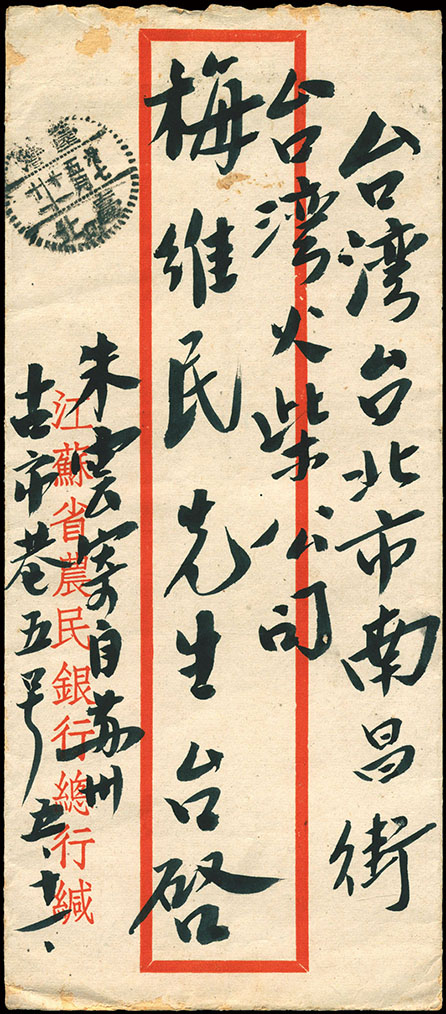 台湾台北市南昌街
台湾火柴公司
梅維民先生台啓
朱雲寄自苏州
古市巷五号 五、十一、
江蘇省農民銀行總行緘
臺灣
五月
臺北